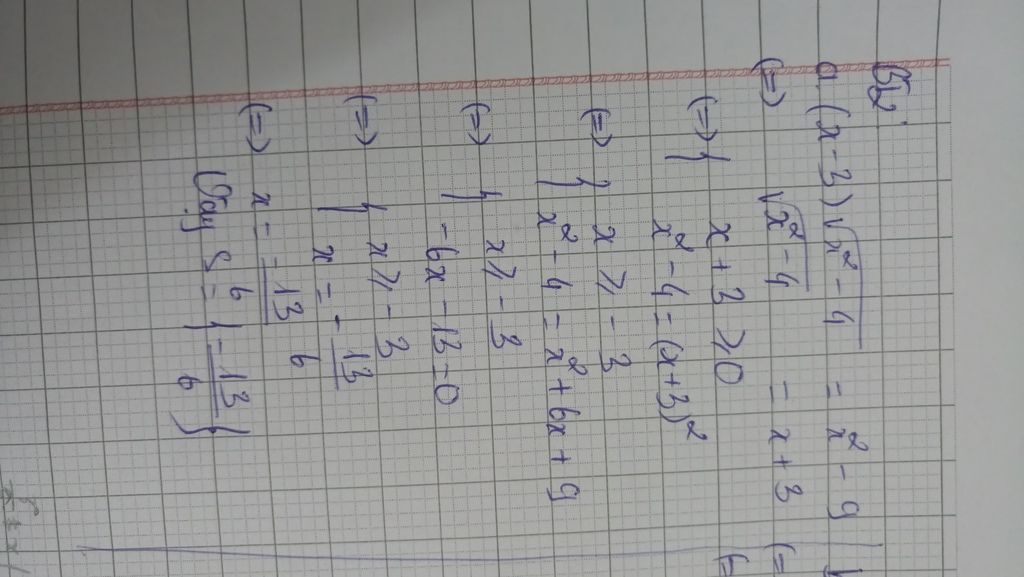 a. (x - 3)√(x² - 4) = x² - 9
(=) √(x² - 4) = x + 3
(=) { x + 3 ⩾ 0
x² - 4 = (x + 3)²
(=) { x ⩾ - 3
x² - 4 = x² + 6x + 9
(=) { x ⩾ - 3
- 6x - 13 = 0
(=) { x ⩾ - 3
x = - 13/6
(=) x = - 13/6
Vậy S = { - 13/6 }